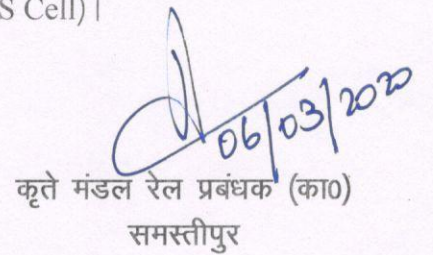 S Cell) |
06/03/2020
कृते मंडल रेल प्रबंधक (का0)
समस्तीपुर